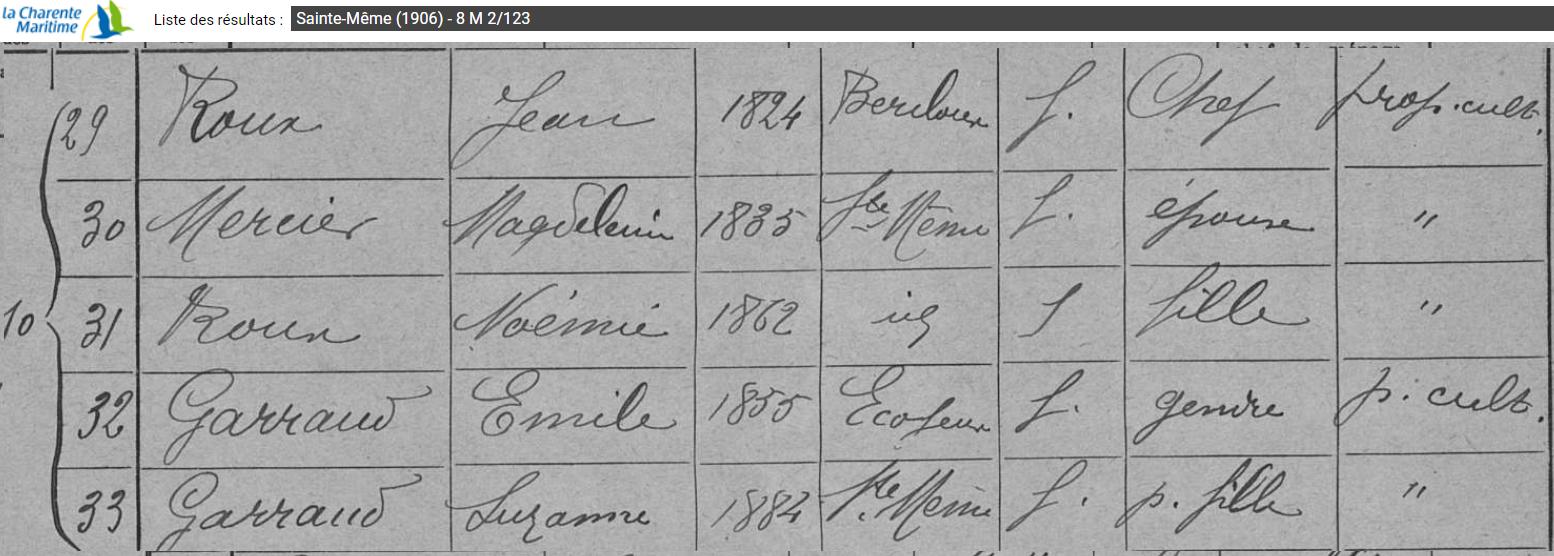 la Charente
Maritime
Liste des résultats :
Sainte-Même (1906) - 8 M 2/123
29 Roux Jean 1824 Bercloux f. Chef prop. cult.
30 Mercier Magdeleine 1835 Ste Même f. épouse "
10 31 Roux Noémie 1862 id f fille "
32 Garraud Emile 1855 Ecoyeux f. gendre p. cult.
33 Garraud Suzanne 1884 Ste Même f. p. fille "